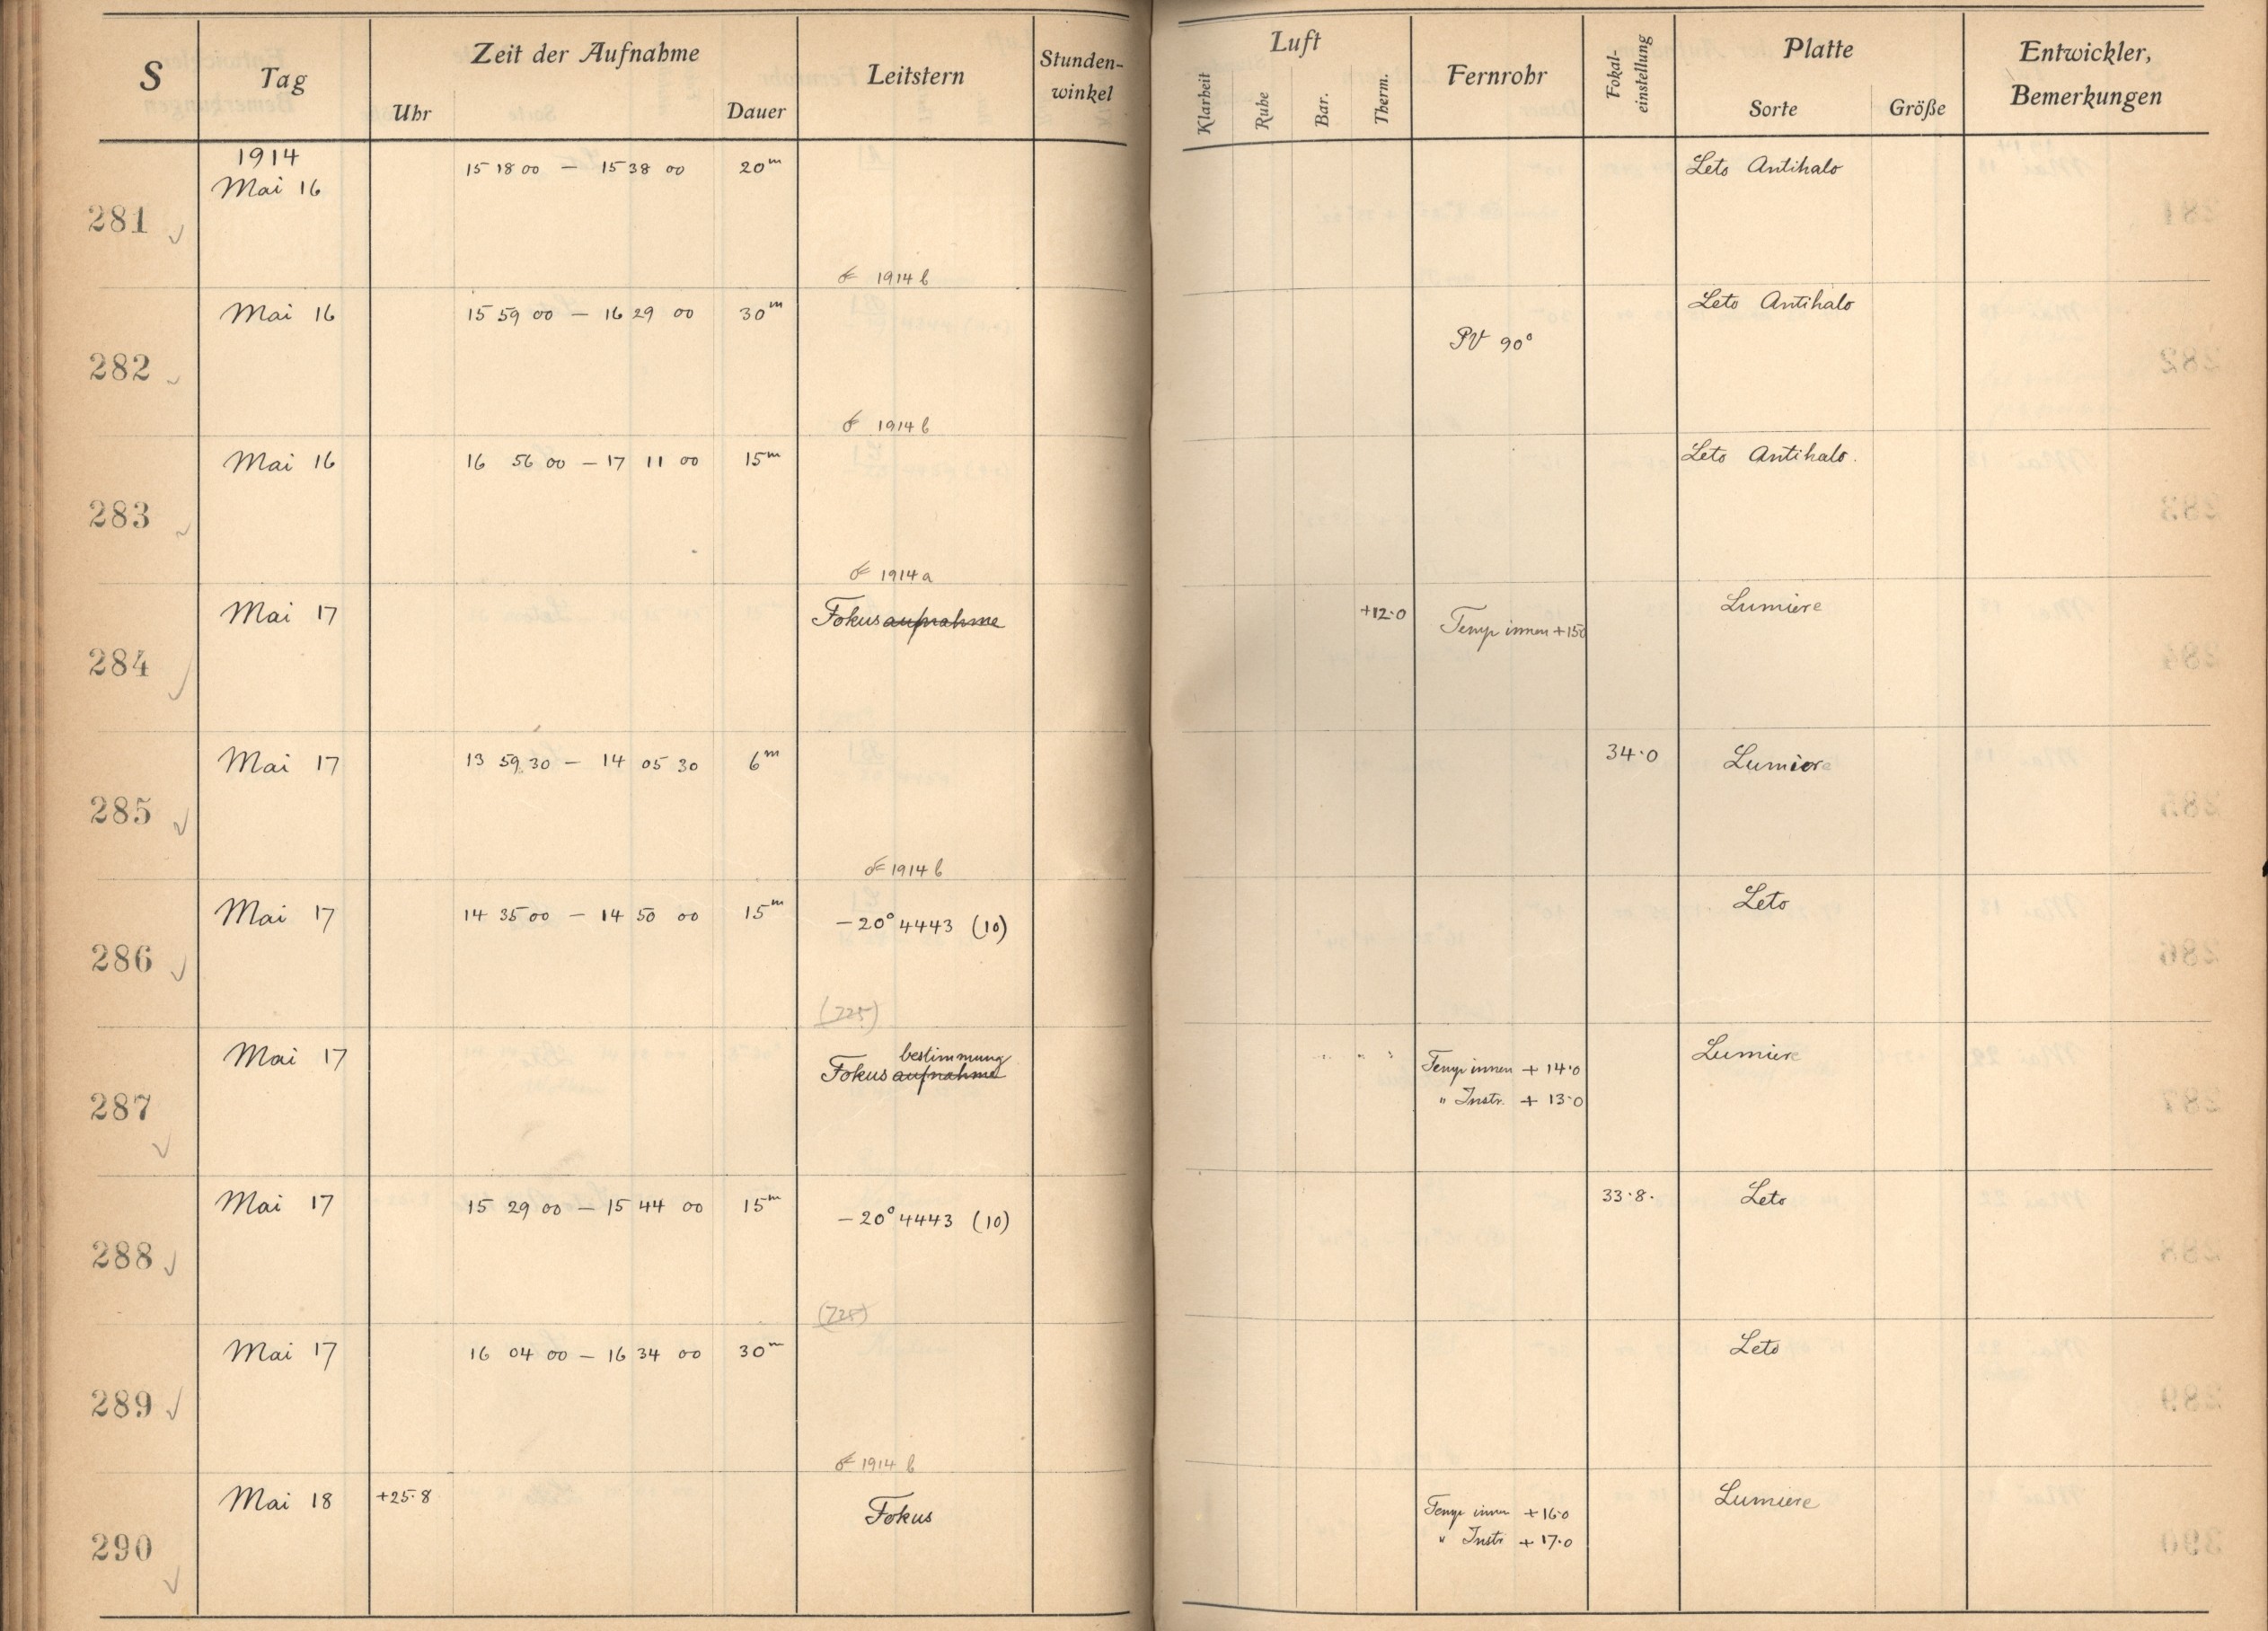 S Tag Zeit der Aufnahme Uhr Dauer Leitstern Stunden-winkel Luft Klarheit Ruhe Bar. Therm. Fernrohr Fokal-einstellung Platte Sorte Größe Entwickler, Bemerkungen
1914
281 Mai 16 15 18 00 – 15 38 00 20m Leto Antihalo
1914 b
282 Mai 16 15 59 00 – 16 29 00 30m PV 90° Leto Antihalo
1914 b
283 Mai 16 16 56 00 – 17 11 00 15m Leto Antihalo.
1914 a
284 Mai 17 Fokusaufnahme +12.0 Temp innen +15.0 Lumiere
285 Mai 17 13 59 30 – 14 05 30 6m 34.0 Lumiere
1914 b
286 Mai 17 14 35 00 – 14 50 00 15m –20° 4443 (10) Leto
(725)
bestimmung
287 Mai 17 Fokusaufnahme Temp innen + 14.0 Lumiere
" Instr. + 13.0
288 Mai 17 15 29 00 – 15 44 00 15m –20° 4443 (10) 33.8. Leto
(725)
289 Mai 17 16 04 00 – 16 34 00 30m Leto
1914 b
290 Mai 18 +25.8 Fokus Temp innen +16.0 Lumiere
" Instr + 17.0